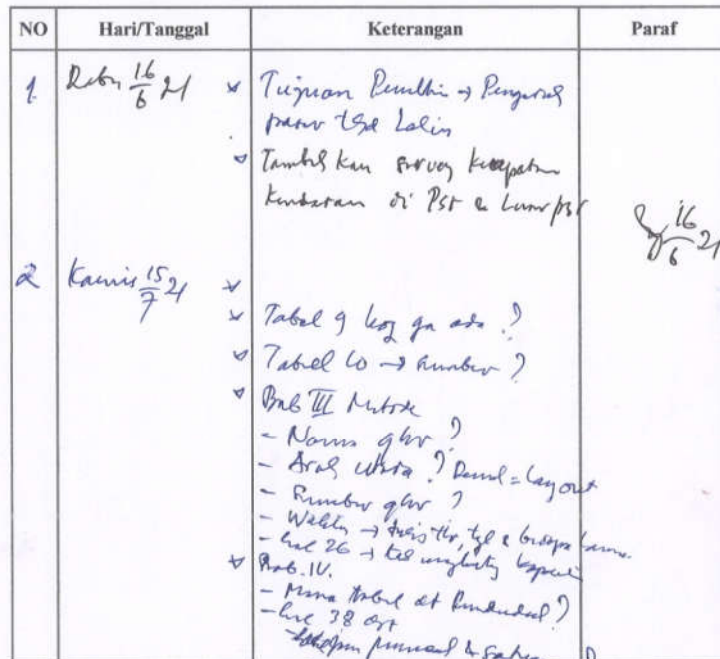 NO Hari/Tanggal Keterangan Paraf
1. Rabu 16/6 21 Tujuan Penelitian → Pengaruh
pasar thd Lalin
Tambahkan survey kecepatan
Kendaraan di Psr & luar psr
16/6 21
2 Kamis 15/7 21
Tabel 9 koq ga ada ?
Tabel 10 → Sumber ?
Bab III Metode
- Nama gbr ?
- Arah utara ? Denah = Layout
- Sumber gbr ?
- Waktu → tulis thr, tgl & berapa lama.
- hal 26 →
Bab. IV.
- Mana tabel dt Penduduk ?
- hal 38